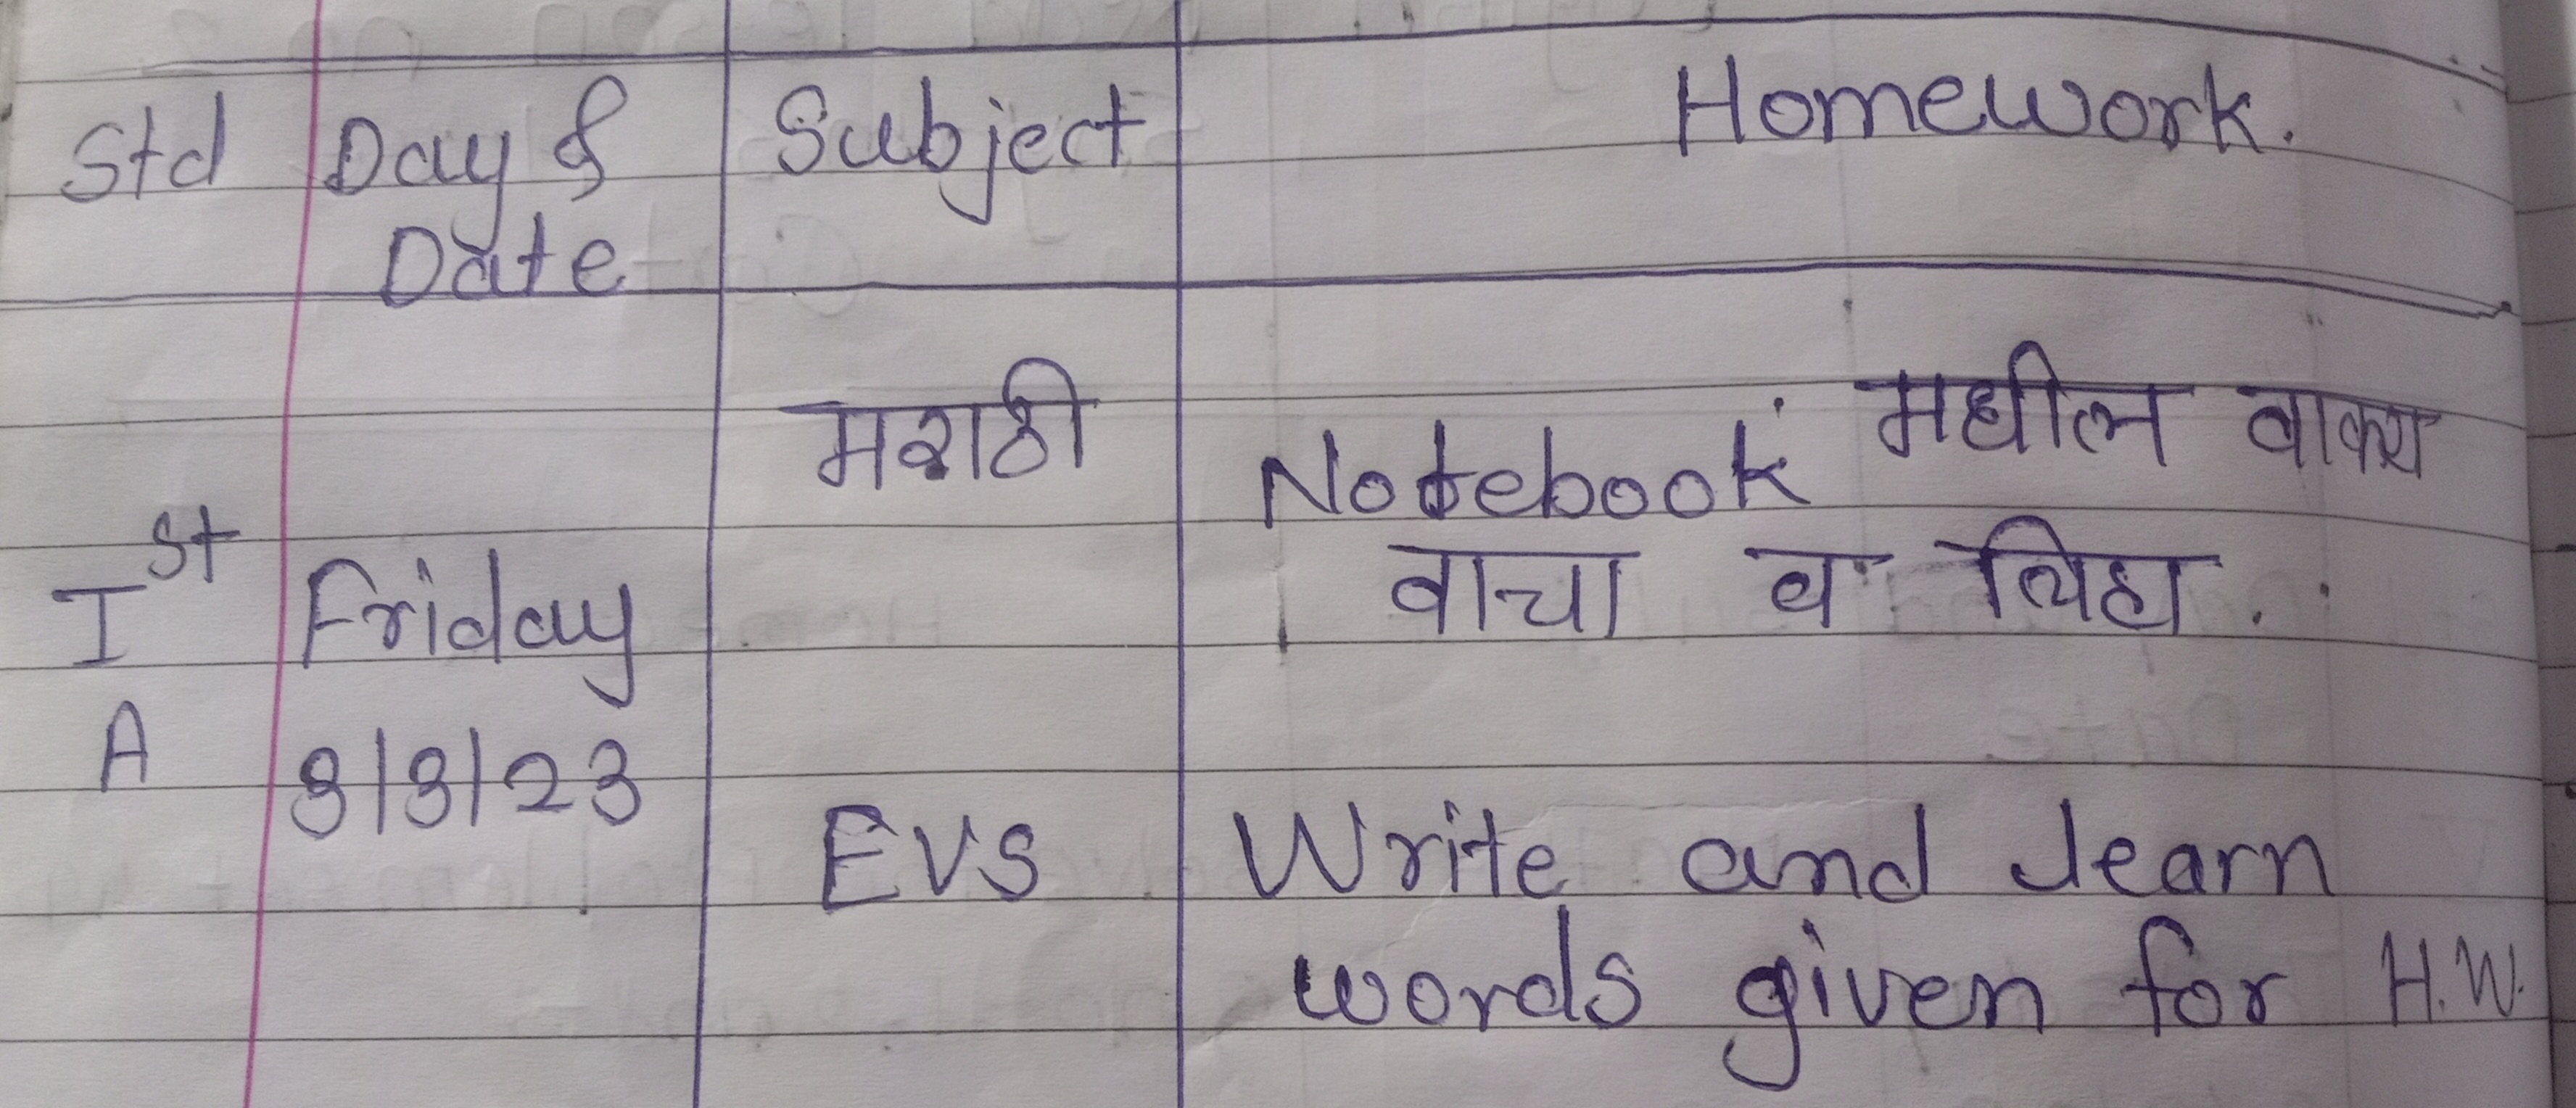 Std Day & Subject Homework.
Date
मराठी Notebook मधील वाक्य
वाचा व लिहा.
Ist Friday
A 3/3/23
EVS Write and learn
words given for H.W.